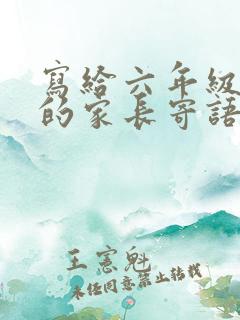 寫給六年級
的家長寄語
王憲魁
未經同意禁止轉載